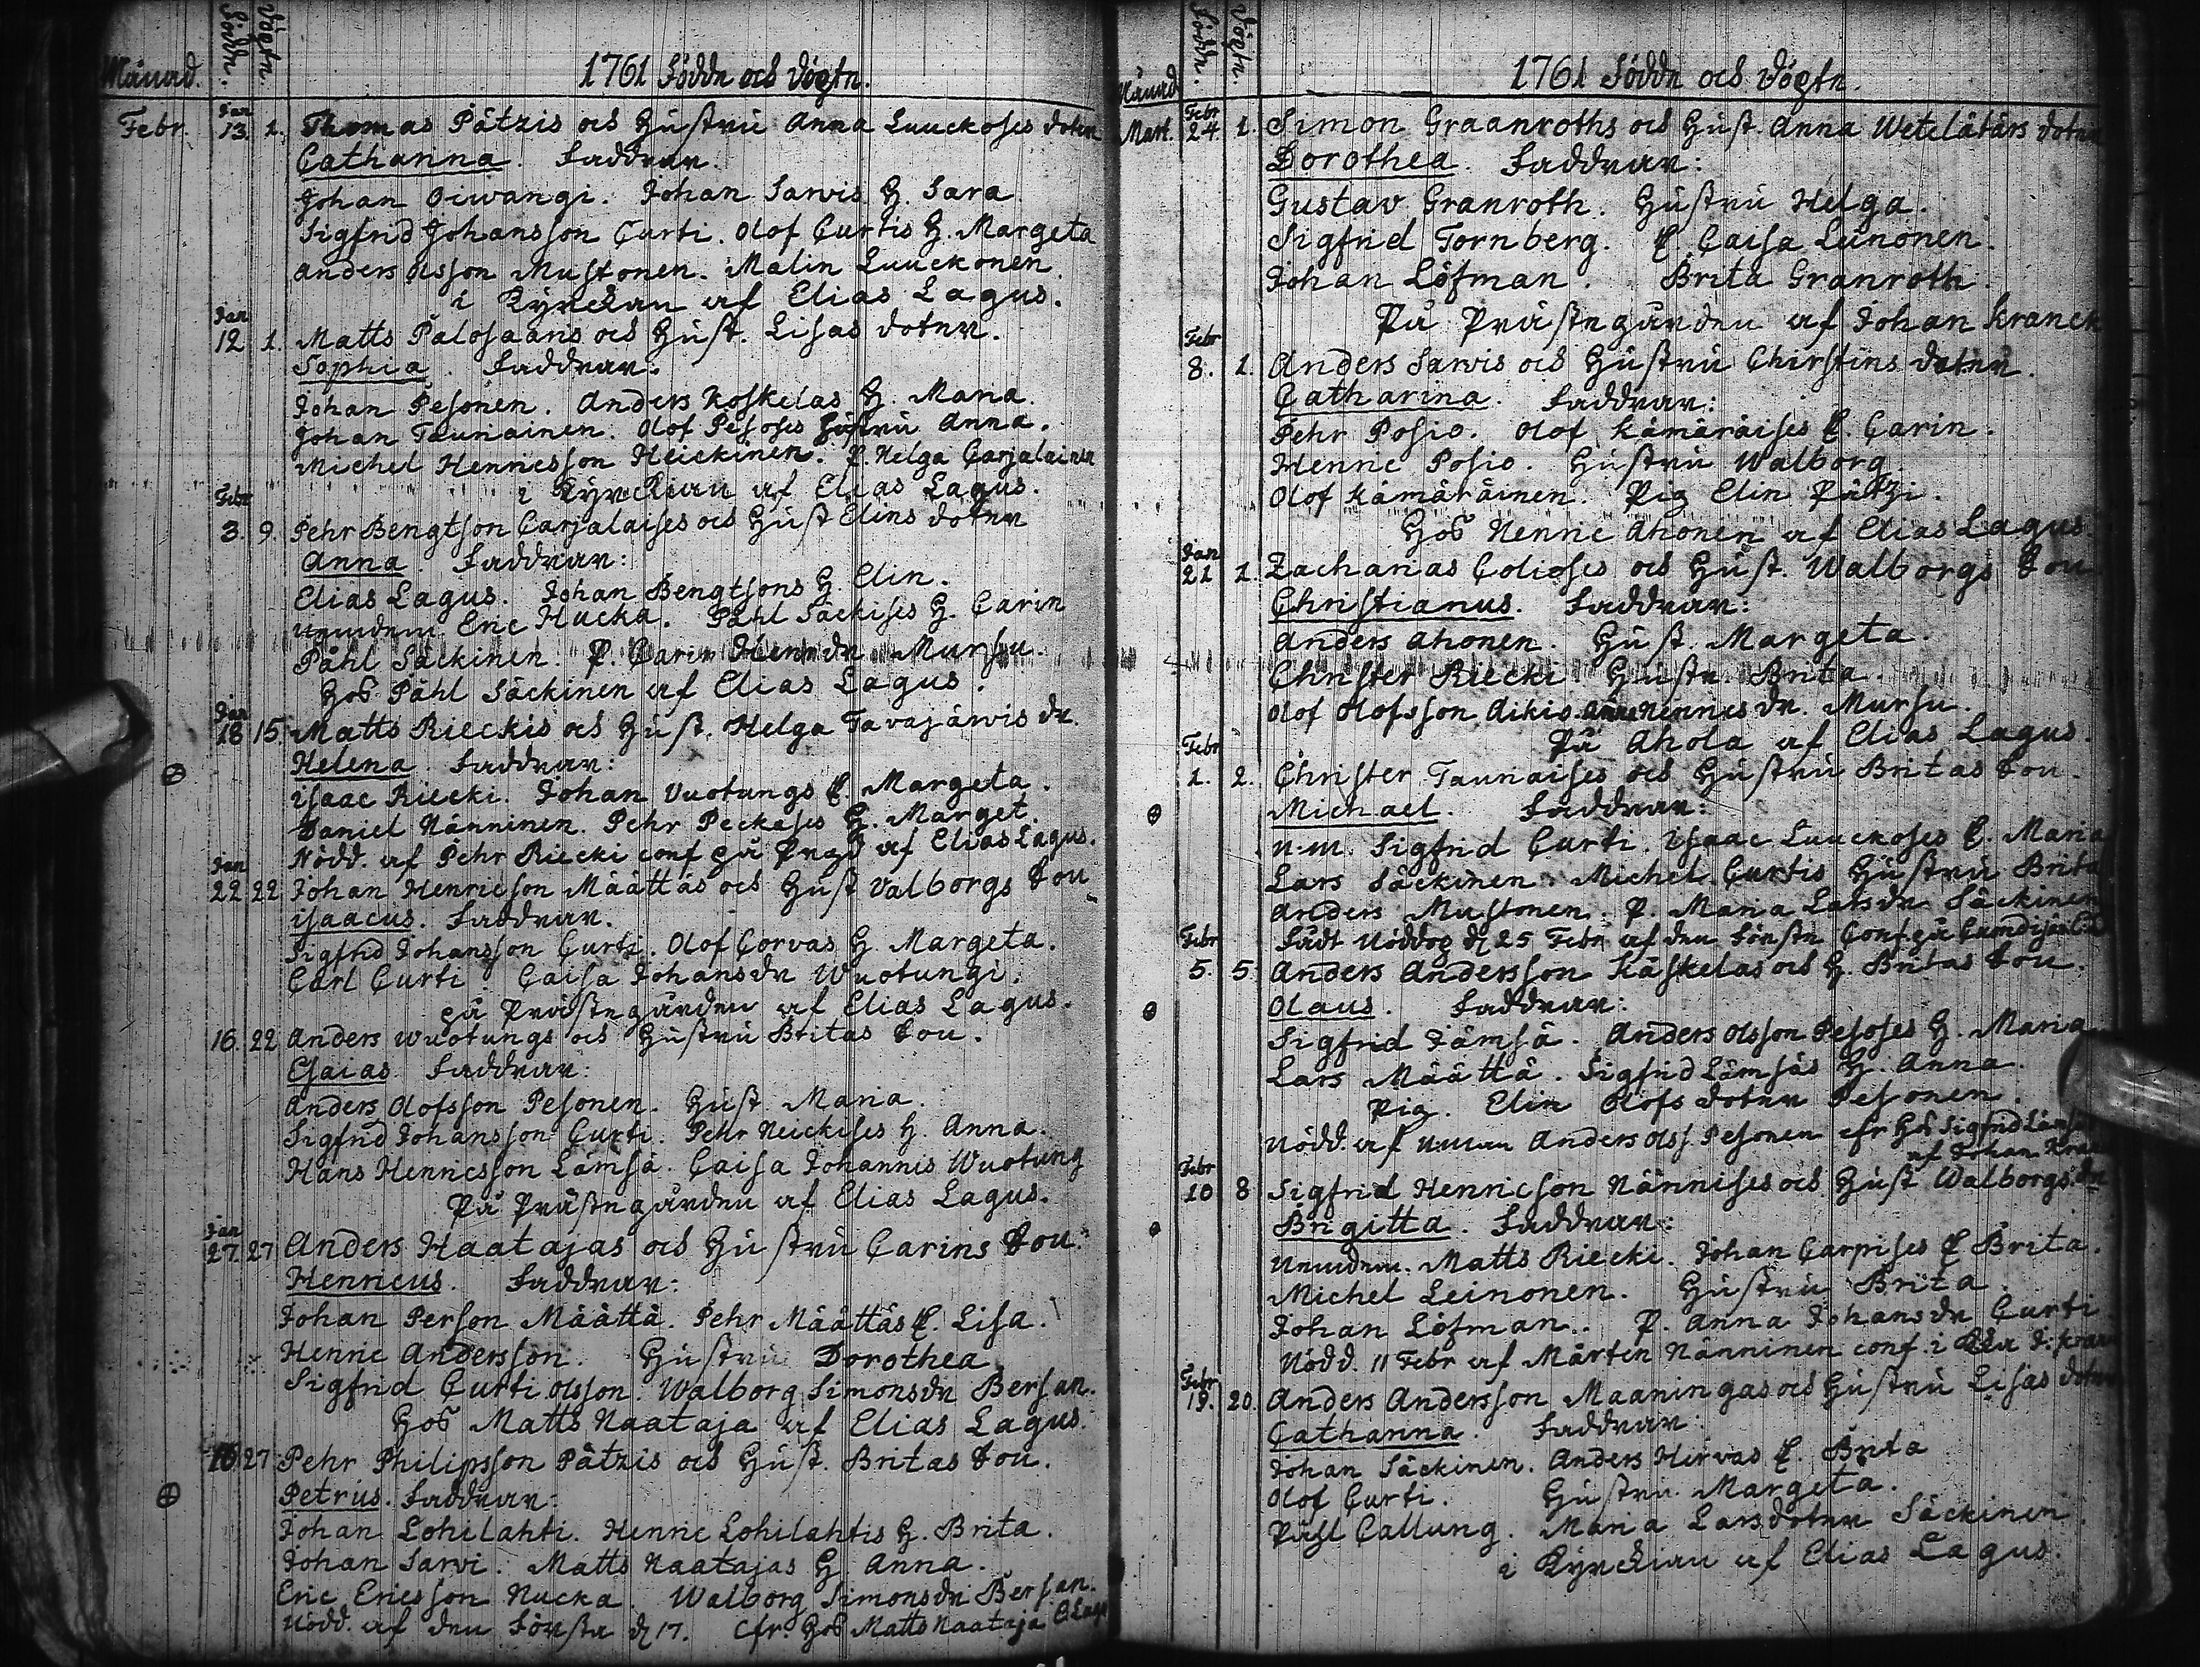 Månad. Föddr. Döptr. 1761 Födde och Döpte.
Febr. Jan 13. 1. Thomas Pätzis och Hustru Anna Luuckoses dotter
Catharina. Faddrar.
Johan Oiwangi. Johan Sarvis H. Sara
Sigfrid Johansson Curti. Olof Curtis H. Margeta
Anders Olsson Mustonen. Malin Luuckonen.
i Kyrckan af Elias Lagus.
Jan 12 1. Matts Palosaaris och Hust. Lisas dotter.
Sophia. Faddrar.
Johan Pesonen. Anders Koskelas H. Maria.
Johan Tauriainen. Olof Pesoses Hustru Anna.
Michel Henricsson Heickinen. P. Helga Carjalainen
i Kyrckian af Elias Lagus.
Febr 3. 9. Pehr Bengtson Carjalaises och Hust Elins dotter
Anna. Faddrar:
Elias Lagus. Johan Bengtsons H. Elin.
Nemdem. Eric Hucka. Påhl Säckises H. Carin
Påhl Säckinen. P. Carin Henr. dr Mursu.
Hos Påhl Säckinen af Elias Lagus.
Jan 18 15. Matts Rieckis och Hust. Helga Tavajärvis dr.
Helena. Faddrar:
Isaac Riecki. Johan Vuotungs H. Margeta.
Daniel Nänninen. Pehr Peckases H. Marget.
Nödd. af Pehr Riecki conf på Prgd af Elias Lagus.
Jan 22 22 Johan Henricson Määttäs och Hust Valborgs Son
Isaacus. Faddrar.
Sigfrid Johansson Curti. Olof Corvas H. Margeta.
Carl Curti. Caisa Johansdr Wuotungi.
på Prästegården af Elias Lagus.
16. 22 Anders Wuotungs och Hustru Britas Son.
Esaias. Faddrar:
Anders Olofsson Pesonen. Hust. Maria.
Sigfrid Johansson Curti. Pehr Heickises H. Anna.
Hans Henricsson Lämsä. Caisa Johannis Wuotung
På Prästegården af Elias Lagus.
Jan 27. 27 Anders Haatajas och Hustru Carins Son.
Henricus. Faddrar:
Johan Person Määttä. Pehr Määttäs H. Lisa.
Henric Andersson. Hustru Dorothea
Sigfrid Curti Olsson. Walborg Simonsdr Bersan.
Hos Matts Haataja af Elias Lagus.
16 27 Pehr Philipsson Pätzis och Hust. Britas Son.
Petrus. Faddrar:
Johan Lohilahti. Henric Lohilahtis H. Brita.
Johan Sarvi. Matts Haatajas H Anna.
Eric Ericsson Hucka. Walborg Simonsdr Bersan.
Nödd. af den Första d 17. Cfr. Hos Matts Haataja
Månad Föddr. Döptr. 1761 Födde och Döpte.
Mart. Febr 24. 1. Simon Graanroths och Hust. Anna Wetelätärs dotter
Dorothea. Faddrar:
Gustav Granroth. Hustru Helga.
Sigfrid Tornberg. P. Caisa Leinonen.
Johan Löfman. Brita Granroth.
På Prästegården af Johan Kranck
Febr 8. 1. Anders Sarvis och Hustru Chirstins dotter.
Catharina. Faddrar:
Pehr Posio. Olof Kämäräises H. Carin.
Henric Posio. Hustru Walborg.
Olof Kämäräinen. Pig Elin Pätzi.
Hos Henric Ahonen af Elias Lagus.
Jan 21 1. Zacharias Colioses och Hust. Walborgs Son
Christianus. Faddrar:
Anders Ahonen. Hust. Margeta.
Christer Riecki Hustr Brita.
Olof Olofsson Aikio Anna Hennes dr. Mursu.
På Ahola af Elias Lagus.
Febr 1. 2. Christer Tauriaises och Hustru Britas Son.
Michael. Faddrar:
N.m. Sigfrid Curti. Isaac Luuckoses H. Maria
Lars Säckinen. Michel Curtis Hustru Brita
Anders Mustonen. P. Maria Larsdr Säckinen
Fådt Nöddop d 25 Febr af den Förste Conf på
Febr 5. 5 Anders Andersson Käskelas och H. Britas Son.
Olaus. Faddrar:
Sigfrid Jämsä. Anders Olsson Pesoses H. Maria
Lars Määttä. Sigfrid Lämsäs H. Anna.
Pig. Elin Olofs dotter Pesonen.
Nödd. af N.man Anders Olss. Pesonen cfr Hos Sigfrid Lämsä
af Johan Kranck
Febr 10 8 Sigfrid Henricson Nännises och Hust Walborgs dr
Brigitta. Faddrar:
Nemdem. Matts Riecki. Johan Carpises H Brita.
Michel Leinonen. Hustru Brita
Johan Löfman. P. Anna Johansdr Curti
Nödd. 11 Febr af Mårten Nänninen conf. i
Febr 19. 20. Anders Andersson Maaningas och Hustru Lisas dotter
Catharina. Faddrar:
Johan Säckinen. Anders Hirvas H. Brita
Olof Curti. Hustru Margeta.
Påhl Callung. Maria Larsdotter Säckinen.
i Kyrckian af Elias Lagus